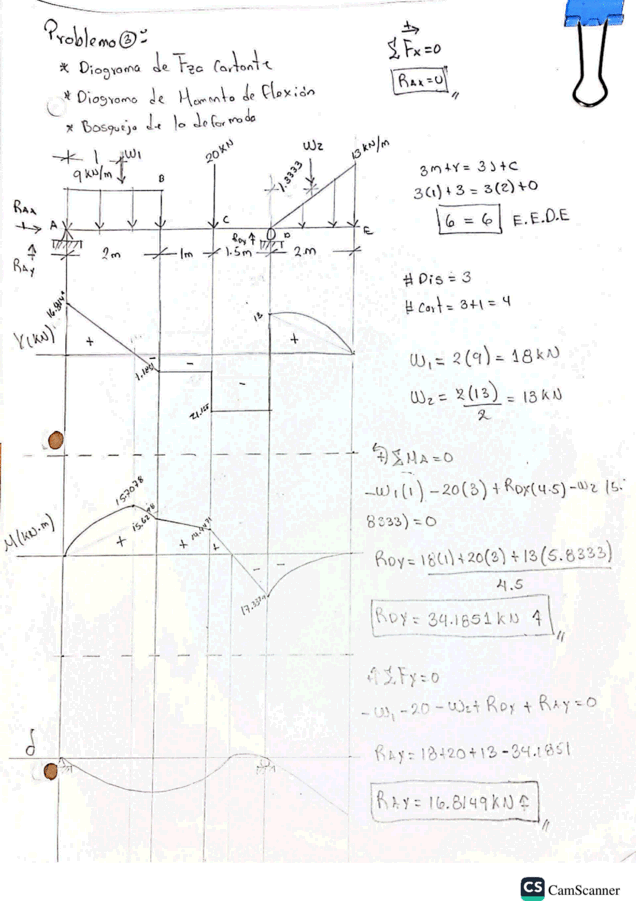 Problema ③:
* Diagrama de Fza Cortante
* Diagrama de Momento de flexión
* Bosquejo de la deformada
ΣFx=0
RAx=0
1
W1
9 kN/m
B
20KN
W2
1.3333
13 kN/m
RAx
A
C
RDy
D
E
RAy
2m
1m
1.5m
2m
3m+r = 3j+c
3(1)+3 = 3(2)+0
6 = 6 E.E.D.E
# Dis = 3
# Cort = 3+1 = 4
W1 = 2(9) = 18kN
W2 = 2(13)/2 = 13kN
V(kN)
+
-
-
13
+
M(kN.m)
+
+
+
- -
ΣMA=0
-W1(1) - 20(3) + RDY(4.5) - W2 (5.
8333) = 0
RDY= 18(1)+20(3)+13(5.8333)
4.5
RDY = 34.1851 kN ↑
↑ΣFy=0
-W1 -20 -W2+ RDY + RAY=0
RAY= 18+20+13-34.1851
RAY= 16.8149 KN ↑
δ
CS CamScanner